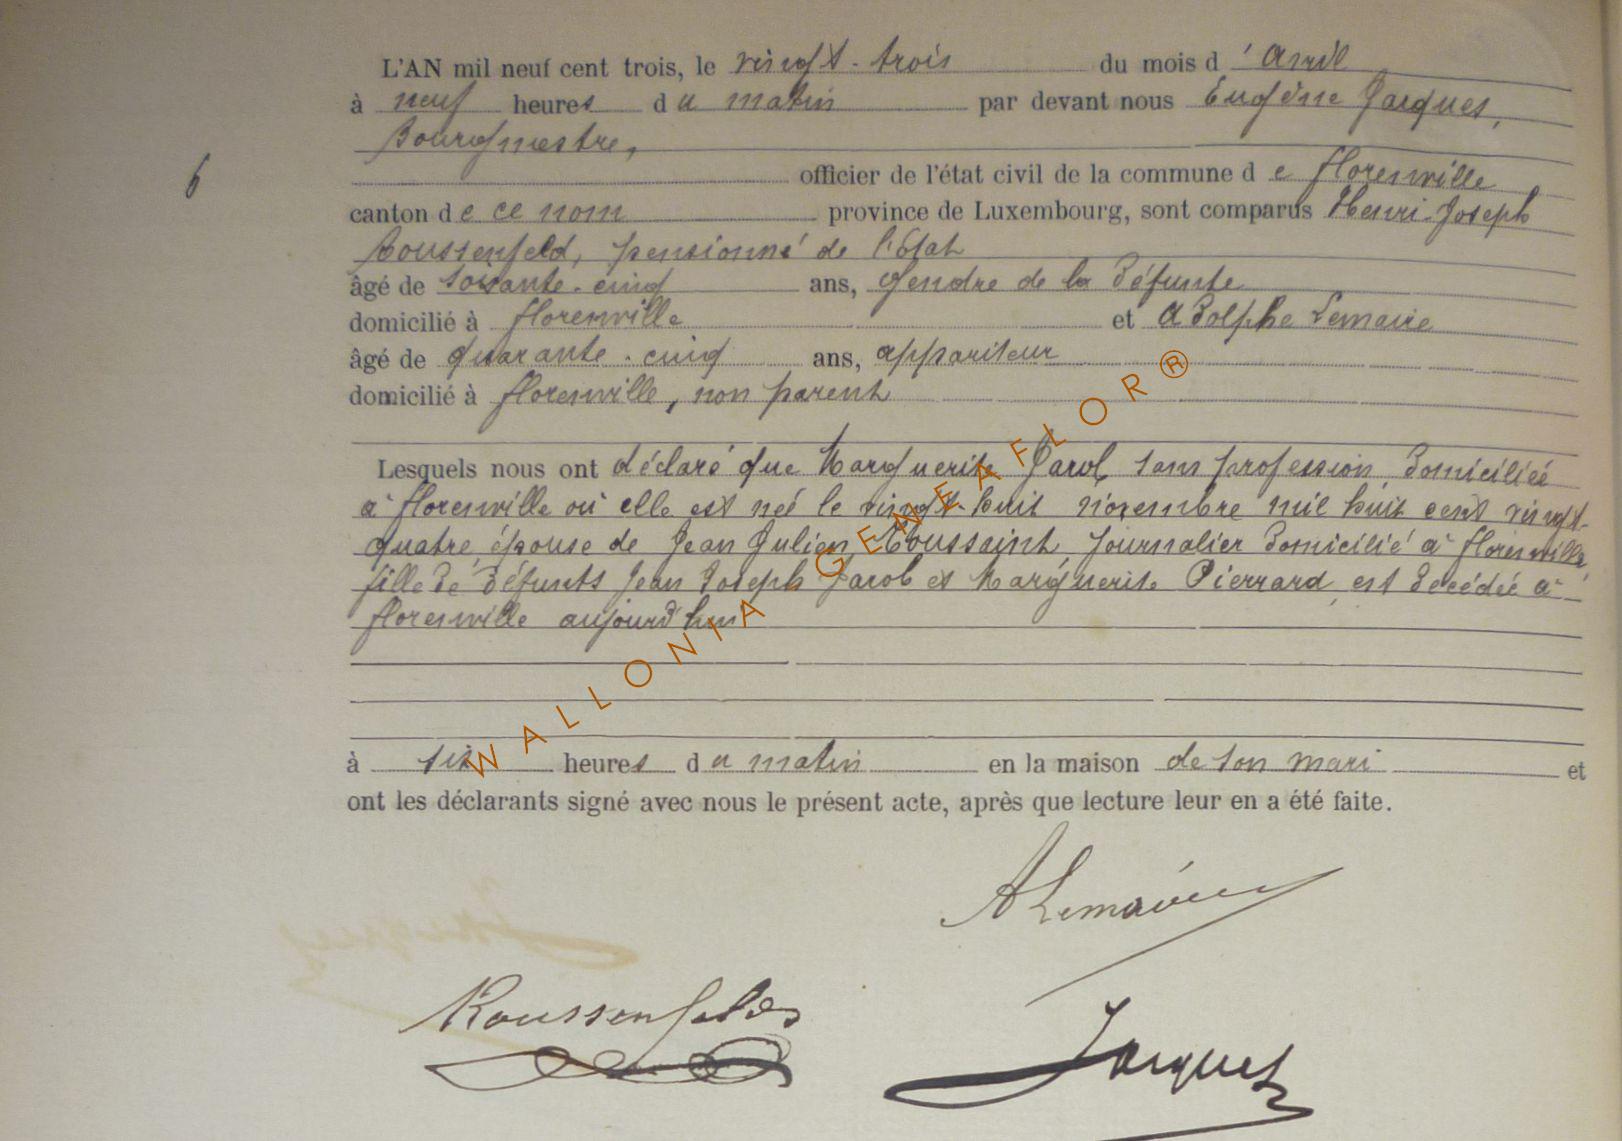 L'AN mil neuf cent trois, le vingt-trois du mois d'Avril
à neuf heures du matin par devant nous Eugène Jacques,
Bourgmestre,
6
officier de l'état civil de la commune de Florenville
canton de ce nom province de Luxembourg, sont comparus Henri-Joseph
Roussenfeld, pensionné de l'Etat
âgé de soixante-cinq ans, gendre de la défunte
domicilié à Florenville et Adolphe Lemaire
âgé de quarante-cinq ans, appariteur
domicilié à Florenville, non parent
Lesquels nous ont déclaré que Marguerite Jacob, sans profession, domiciliée
à Florenville où elle est née le vingt-huit novembre mil huit cent vingt-
quatre, épouse de Jean Julien Toussaint, journalier domicilié à Florenville,
fille de défunts Jean Joseph Jacob et Marguerite Pierrard, est décédée à
Florenville aujourd'hui
à six heures du matin en la maison de son mari et
ont les déclarants signé avec nous le présent acte, après que lecture leur en a été faite.
ALemaire
Roussenfeld
Jacques
WALLONIA GENEAFLOR®